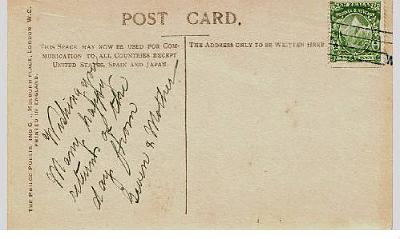 POST CARD.
THIS SPACE MAY NOW BE USED FOR COM-
MUNICATION TO ALL COUNTRIES EXCEPT
UNITED STATES, SPAIN AND JAPAN.
THE ADDRESS ONLY TO BE WRITTEN HERE
Wishing you
Many happy
returns of the
day from
& Mother
PRINTED IN ENGLAND.